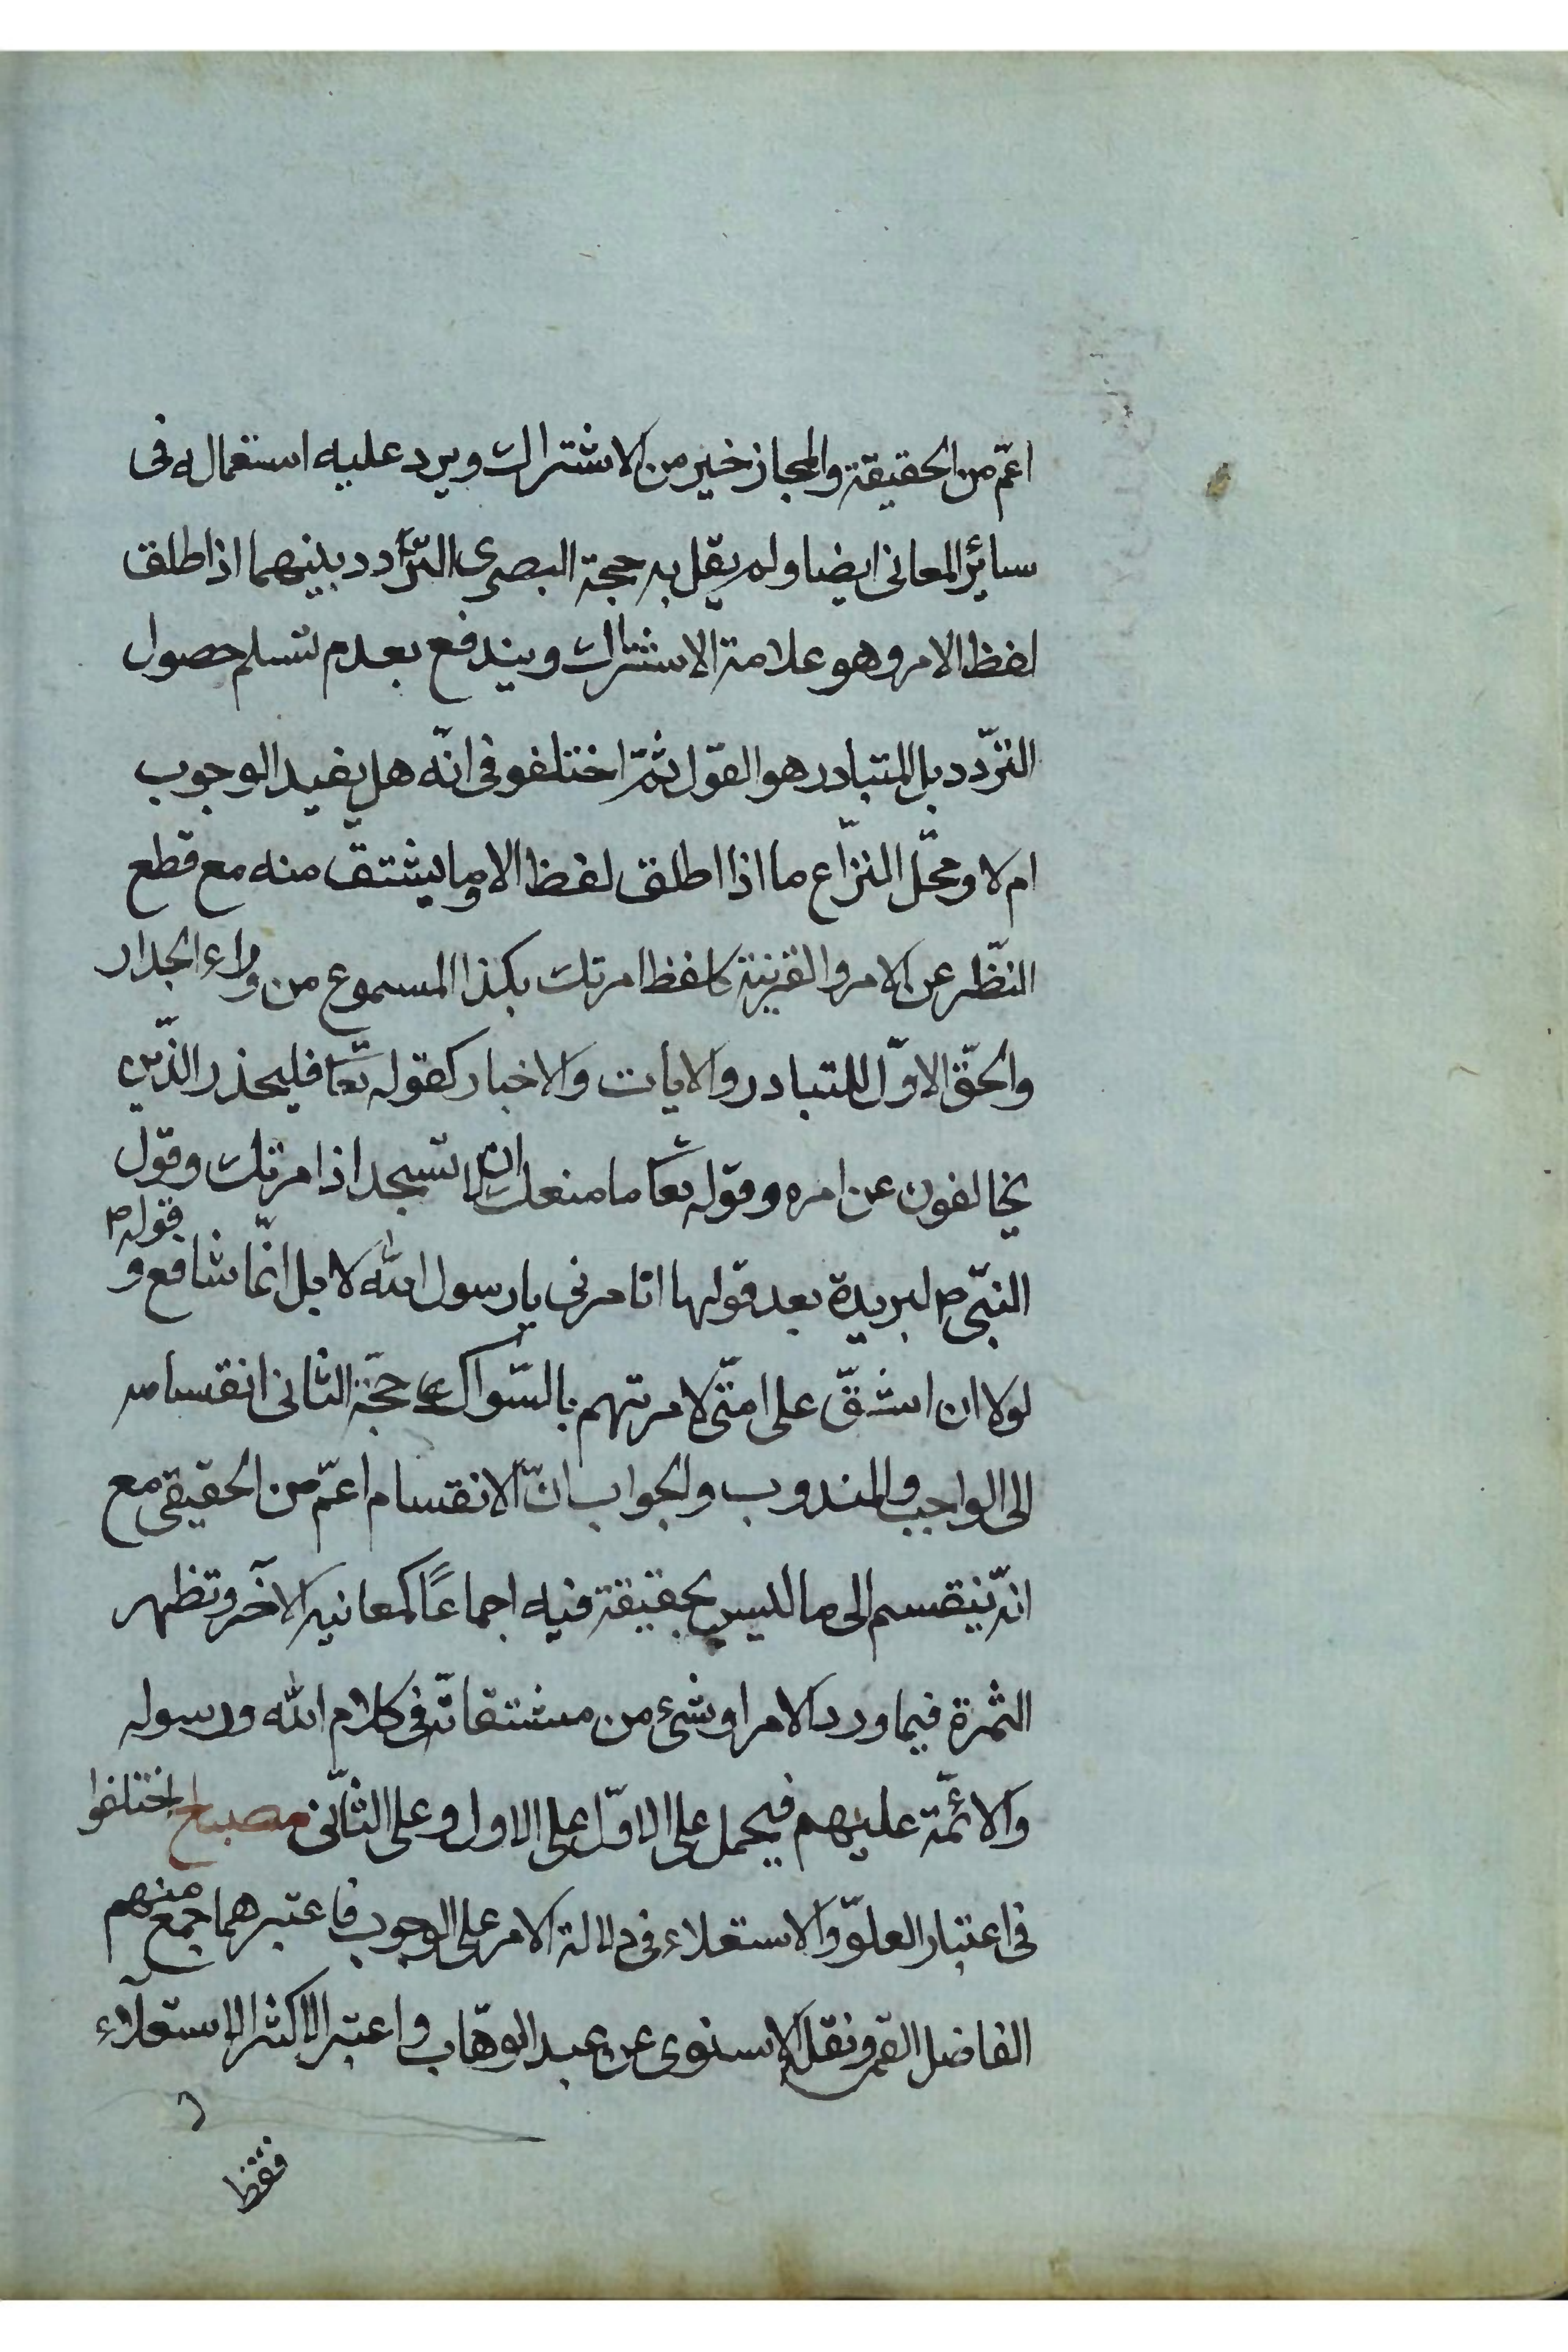 اعمّ من الحقيقة والمجاز خير من الاشتراك ويرد عليه استعماله فى
سائر المعانى ايضا ولم يقل به حجة البصرى التّردد بينهما اذا طلق
لفظ الامر وهو علامة الاشتراك ويندفع بعدم تسلم حصول
التردّد بل المتبادر هو القول ثمّ اختلفو فى انّه هل يفيد الوجوب
ام لا ومحّل النزّاع ما اذا اطلق لفظ الا وما يشتقّ منه مع قطع
النظّر عن الامر والقرينة كلفظ امرتك بكذا المسموع من وراء الجدار
والحقّ الاوّل للتبادر والايات والاخبار كقوله تعا فليحذر الذّين
يخالفون عن امره وقوله تعا ما منعك ان لا تسجد اذ امرتك وقول
النبّى ص لبريدة بعد قولها اتامرنى يا رسول الله لا بل انّما شافع و قوله ص
لولا ان اشقّ على امتّى لامرتهم بالسّواك حجّة الثانى انقسامه
الى الواجب والمندوب والجواب انّ الانقسام اعمّ من الحقيقى مع
انّه ينقسم الى ما ليس بحقيقة فيه اجماعًا كمعانيه الآخر وتظهر
الثمرة فيما ورد الامر او شىء من مشتقاته فى كلام الله ورسوله
والائمّة عليهم فيحمل على الاوّل على الاول وعلى الثانّى مصباح اختلفوا
فى اعتبار العلوّ والاستعلاء فى دلالة الامر على الوجوب فاعتبرهما جمع منهم
الفاضل القمى ونقل الاسنوى عن عبد الوهّاب واعتبر الاكثر الاستعلاء
فقط